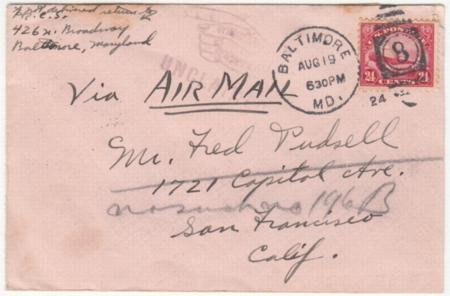 If not delivered return to
426 N. Broadway
Baltimore, Maryland
UNCLA
BALTIMORE
AUG 19
630PM
MD.
24
8
24 CENTS 24
Via AIR MAIL
Mr. Fred Pudsell
1721 Capitol Ave.
no such no 196 B
San Francisco
Calif.